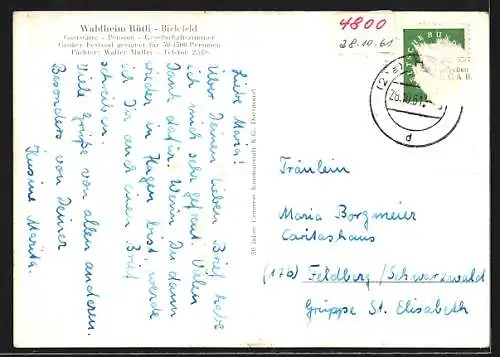 Waldheim Rütli - Bielefeld
Gaststätte - Pension - Gesellschaftszimmer
Großer Festsaal geeignet für 50-1500 Personen
Pächter: Walter Müller - Telefon
4800
28.10.61
DEUTSCHE BUNDES
Liebe Maria!
Über Deinen lieben Brief habe
ich mich sehr gefreut. Vielen
Dank dafür. Wenn Du dann
wieder in Hagen bist, werde
ich Dir auch einen Brief
schreiben.
Viele Grüße von allen anderen.
Besonders von Deiner
Kusine Marita.
50 Jahre Cramers Kunstanstalt KG. Dortmund
Fräulein
Maria Borgmeier
Caritashaus
(17b) Feldberg/Schwarzwald
Gruppe St. Elisabeth
d